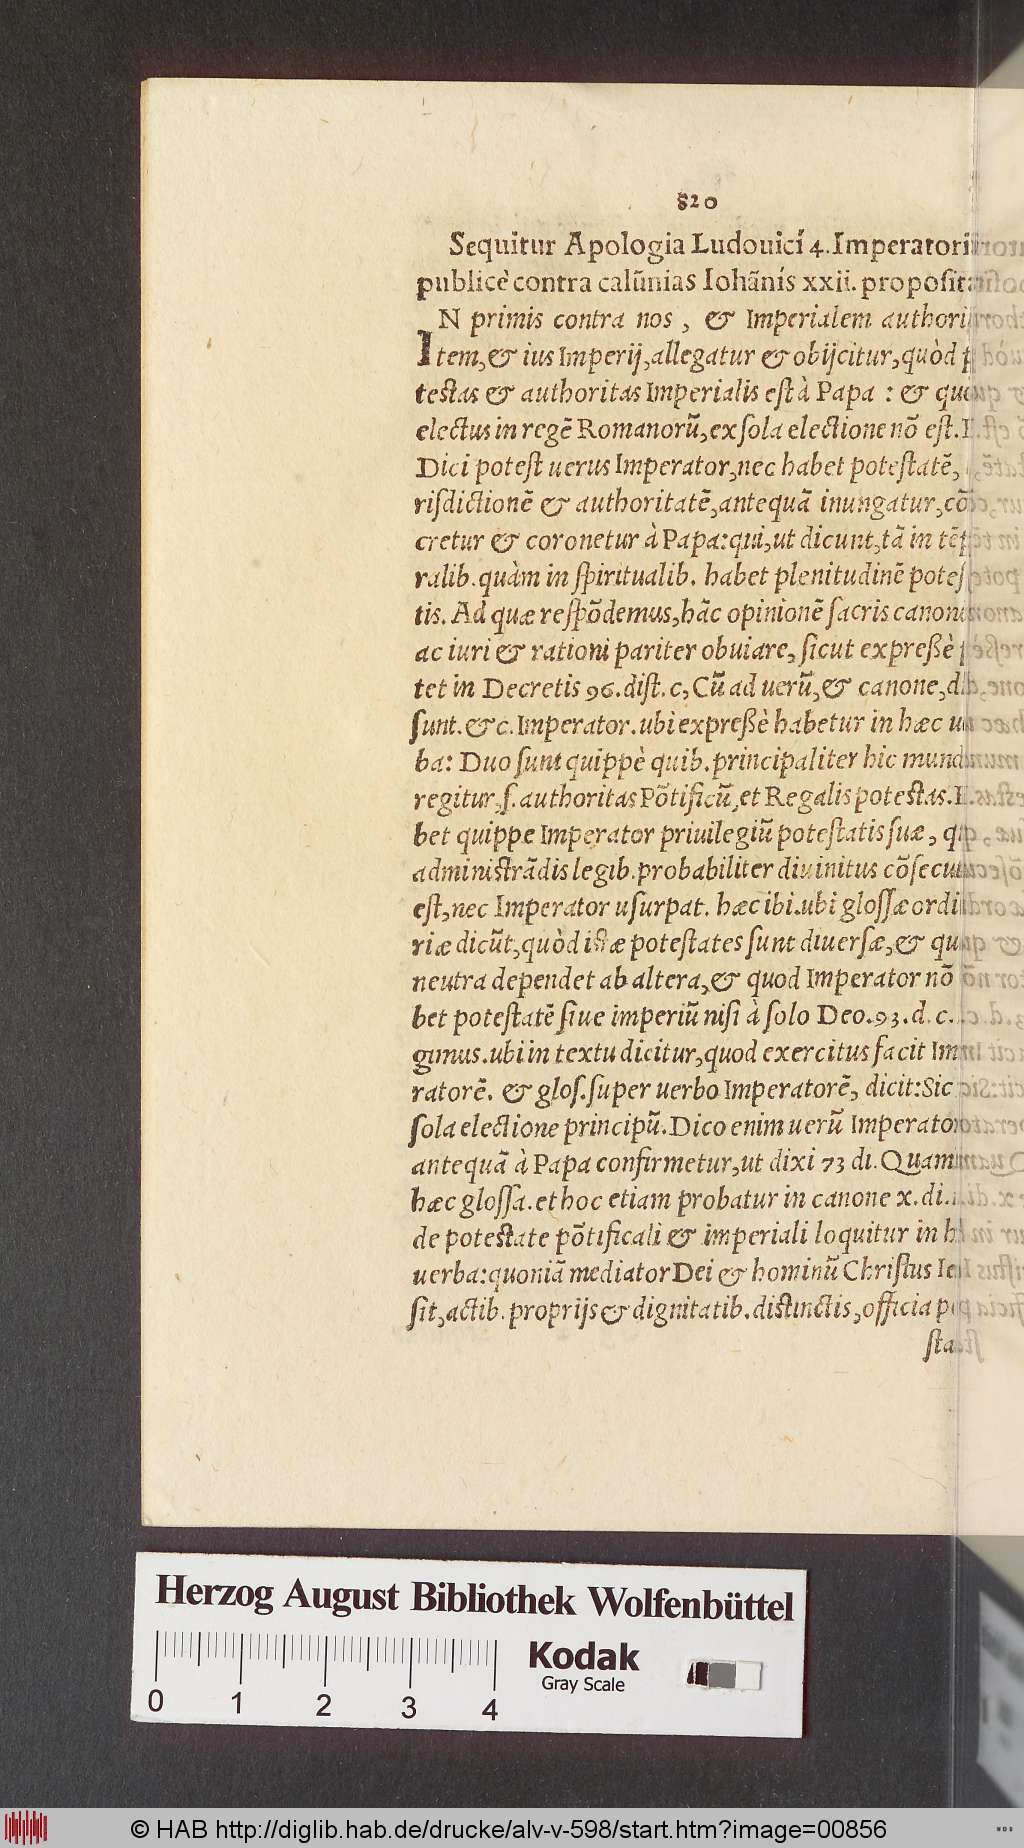 820
Sequitur Apologia Ludouici 4. Imperatori
publicè contra calũnias Iohãnis xxii. proposit
IN primis contra nos, & Imperialem authori
tem, & ius Imperij, allegatur & obijcitur, quòd p
testas & authoritas Imperialis est à Papa : & qu
electus in regẽ Romanorũ, ex sola electione nõ est.
Dici potest uerus Imperator, nec habet potestatẽ,
risdictionẽ & authoritatẽ, antequã inungatur, cõ
cretur & coronetur à Papa: qui, ut dicunt, tã in tẽp
ralib. quàm in spiritualib. habet plenitudinẽ potes
tis. Ad quæ respõdemus, hãc opinionẽ sacris canoni
ac iuri & rationi pariter obuiare, sicut expreßè p
tet in Decretis 96. dist. c, Cũ ad uerũ, & canone, d
sunt. & c. Imperator. ubi expreßè habetur in hæc u
ba: Duo sunt quippè quib. principaliter hic mund
regitur, s. authoritas Põtificũ, et Regalis potestas.
bet quippe Imperator priuilegiũ potestatis suæ, q
administrãdis legib. probabiliter diuinitus cõsecu
est, nec Imperator usurpat. hæc ibi. ubi glossæ ordi
riæ dicũt, quòd istæ potestates sunt diuersæ, & qu
neutra dependet ab altera, & quod Imperator nõ
bet potestatẽ siue imperiũ nisi à solo Deo. 93. d. c.
gimus. ubi in textu dicitur, quod exercitus facit Im
ratorẽ. & glos. super uerbo Imperatorẽ, dicit: Sic
sola electione principũ. Dico enim uerũ Imperato
antequã à Papa confirmetur, ut dixi 73 di. Quam
hæc glossa. et hoc etiam probatur in canone x. di.
de potestate põtificali & imperiali loquitur in h
uerba: quoniã mediator Dei & hominũ Christus Ie
sit, actib. proprijs & dignitatib. distinctis, officia p
sta
Herzog August Bibliothek Wolfenbüttel
Kodak
Gray Scale
0 1 2 3 4
© HAB http://diglib.hab.de/drucke/alv-v-598/start.htm?image=00856